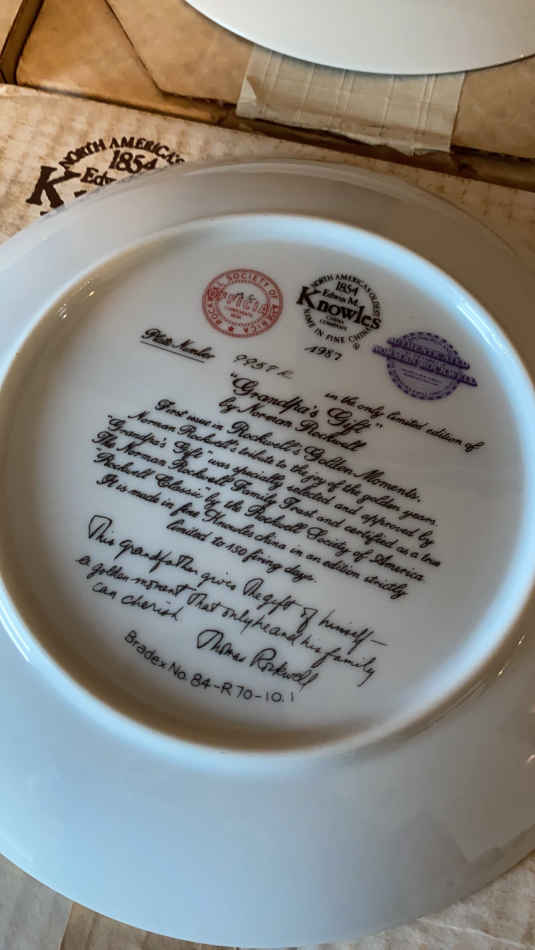 NORTH AMERICA'S
1854
K
ROCKWELL SOCIETY OF AMERICA
NORTH AMERICA'S OLDEST
1854
Edwin M.
Knowles
CHINA
COMPANY
NAME IN FINE CHINA
1987
AUTHENTICATED
NORMAN ROCKWELL
Plate Number in the only limited edition of
"Grandpa's Gift"
by Norman Rockwell
First issue in Rockwell's Golden Moments,
Norman Rockwell's tribute to the joy of the golden years.
"Grandpa's Gift" was specially selected and approved by
The Norman Rockwell Family Trust and certified as a true
Rockwell Classic by the Rockwell Society of America.
It is made in fine Knowles china in an edition strictly
limited to 150 firing days.
This grandfather gives the gift of himself—
a golden moment that only he and his family
can cherish
Thomas Rockwell
Bradex No. 84-R70-10.1